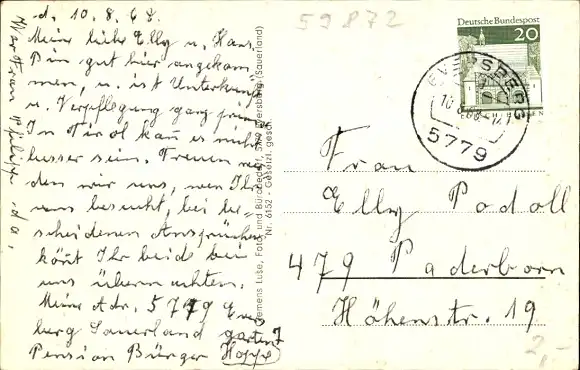 d. 10.8.68.
Meine liebe Elly u. Hans.
Bin gut hier angekom
men, u. ist Unterkunft
u. Verpflegung ganz prima
In Tirol kann es nicht
besser sein. Freuen wür
den wir uns, wen Ihr
uns besucht, bei be-
scheidenen Ansprüchen
könt Ihr beide bei
uns übernachten.
Meine Adr. 5779 Evers
berg Sauerland garten 7
Pension Bürger Hoppe
War Frau
da.
Clemens Luse, Foto und Bürobedarf, 5779 Eversberg (Sauerland)
Nr. 6152 - Gesetzl. gesch.
59872
Deutsche Bundespost
20
EVERSBERG
5779
Frau
Elly Podoll
479 Paderborn
Höhenstr. 19
2,-